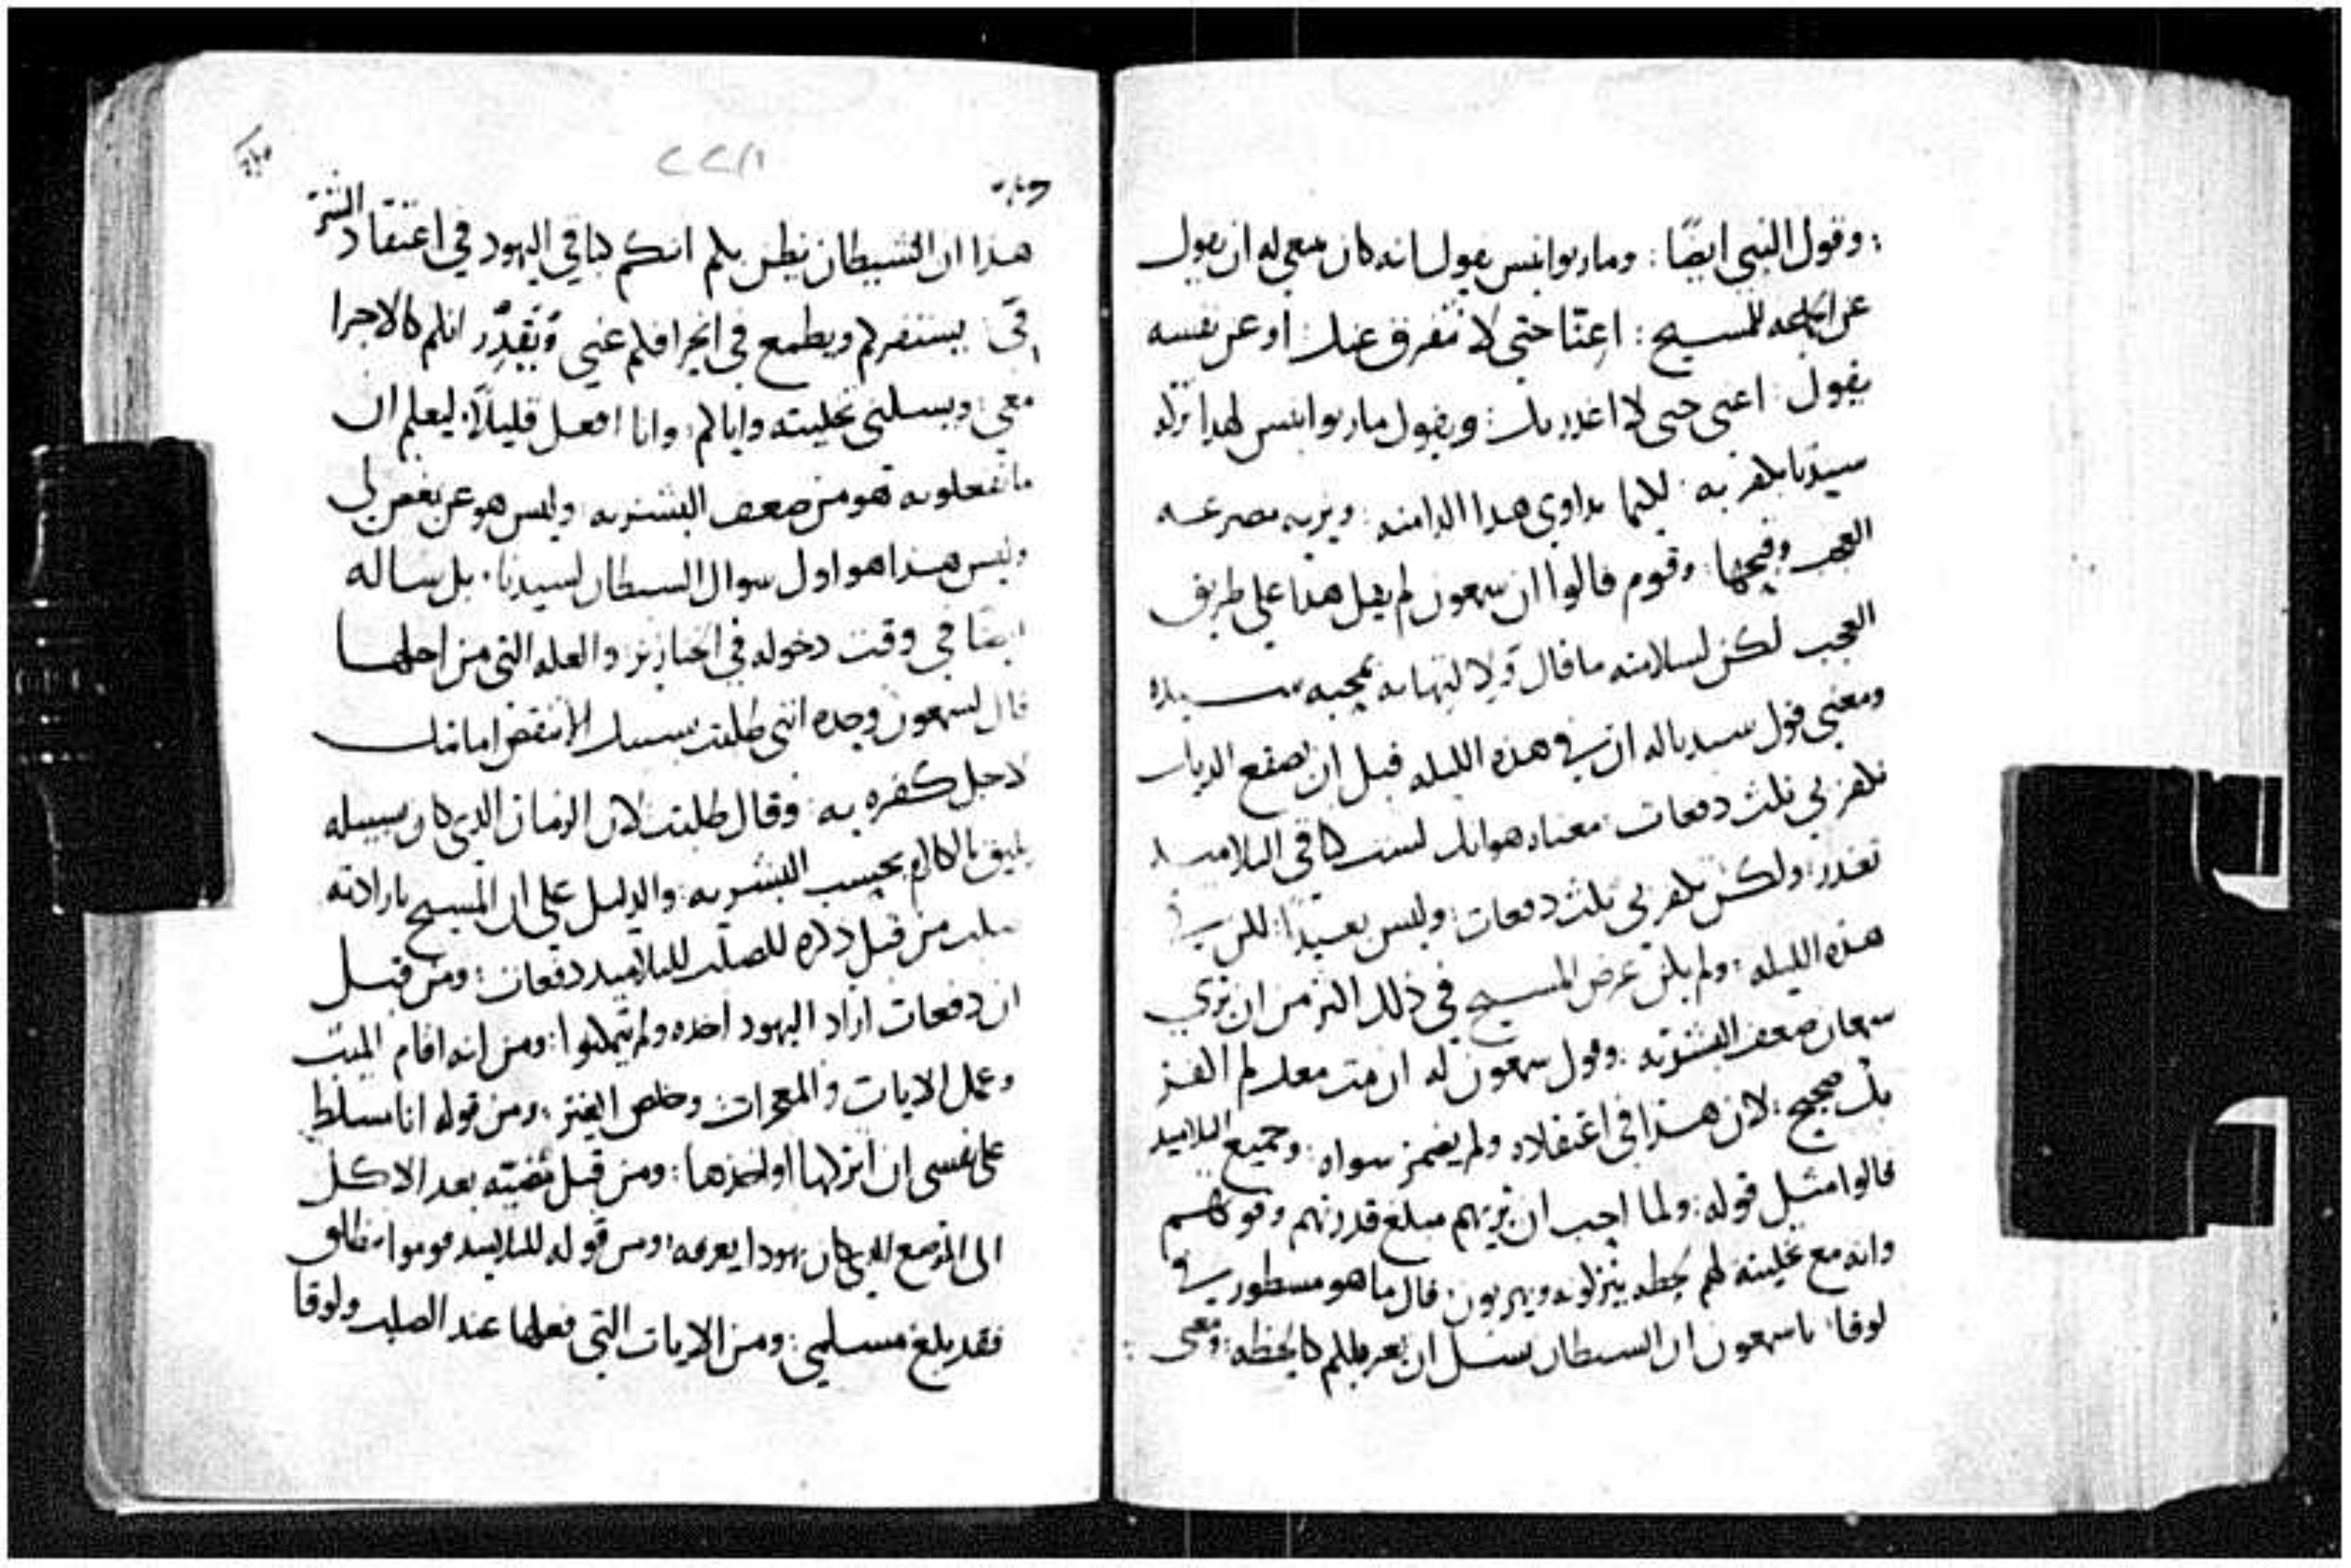 : وقول النبي ايضًا : ومار يوانيس يقول انه كان ينبغي له ان يقول
عن الجماعه للمسيح : اعِنّا حتي لا نتفرق عنك او عن نفسه
يقول : اعني حتى لا اغدر بك : ويقول مار يوانيس لهذا تركه
سيدنا يكفر به : لكيما يداوي هذا الدا منه : ويريه مصرعه
العجب وقبحها : وقوم قالوا ان سمعون لم يقل هذا علي طريق
العجب لكن لسلامته ما قال ولا لتهاونه بمحبه سيده
ومعني قول سيدنا له ان في هذه الليله قبل ان يصقع الديك
تكفر بي ثلث دفعات : معناه هو انك لست كباقي التلاميد
تغدر : ولكن تكفر بي ثلث دفعات : وليس بعيدًا : لكن في
هذه الليله : ولم يكن غرض المسيح في ذلك اكثر من ان يري
سمعان ضعف البشريه : وقول سمعون له ان مت معك لم اكفر
بك صحيح : لان هذا في اعتقاده ولم يضمر سواه : وجميع التلاميد
قالوا مثل قوله : ولما احب ان يريهم مبلغ قدرتهم وقوتهم
وانه مع تخليته لهم لحظه يتركونه ويهربون : قال ما هو مسطور في
لوقا : يا سمعون ان السيطان سئل ان يغربلكم كالحنطه : ومعني :
٢٢١
هذا ان الشيطان يظن بكم انكم كباقي اليهود في اعتقاد الشر
في : يستنفركم ويطمع في انحرافكم عني وَيُقدِّر انكم كالاجرا
معي : ويسلني تخليته واياكم : وانا افعل قليلًا : ليعلم ان
ما تفعلونه هو من ضعف البشريه : وليس هو عن بغض لي
وليس هذا هو اول سوال السيطان لسيدنا : بل ساله
ايضًا في وقت دخوله في الخنازير : والعله التي من اجلها
قال لسمعون وحده انني طلبت بسببك الا تنقض امانتك
لاجل كفره به : وقال طلبت لان الزمان الذي كان سبيله
يليق بالكلام بحسب البشريه : والدليل علي ان المسيح بارادته
صلب من قبل ذكره للصلب للتلاميد دفعات : ومن قبل
ان دفعات اراد اليهود اخذه ولم يتمكنوا : ومن انه اقام الميت
وعمل الايات والمعجزات وخاصه الفتر : ومن قوله انا مسلط
على نفسى ان اتركها او اخذها : ومن قبل مُضيّه بعد الاكل
الى الموضع الذي كان يهودا يعرفه : ومن قوله للتلاميد قوموا ننطلق
فقد بلغ مسلمي : ومن الايات التي فعلها عند الصلب ولوقا